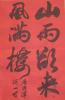 山雨欲来
風满樓